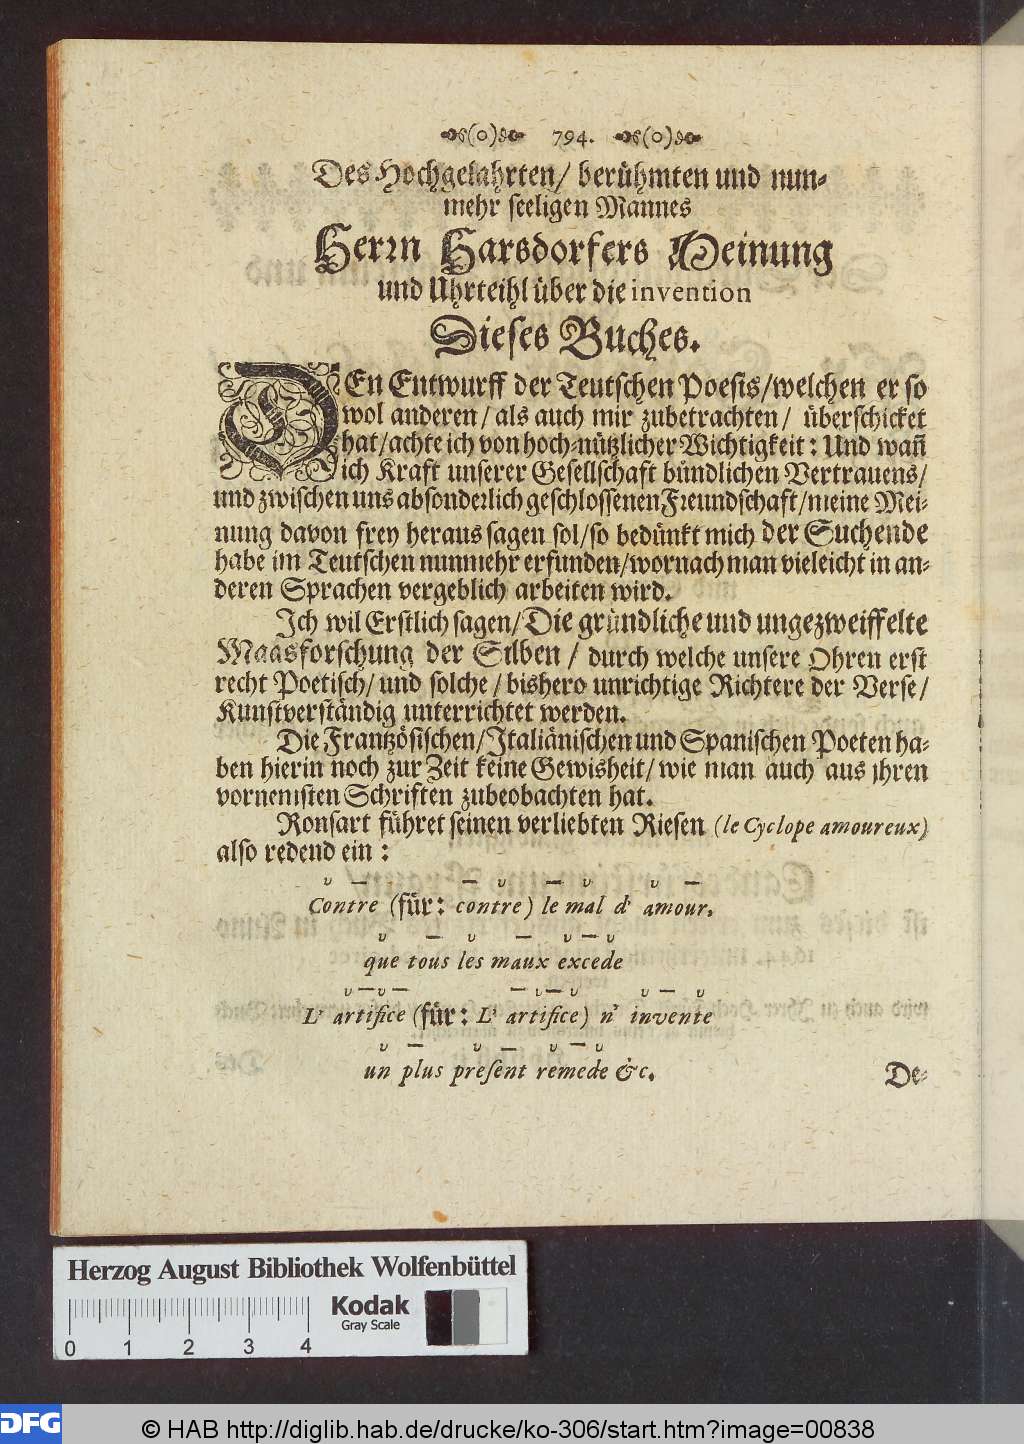 (o) 794. (o)
Des Hochgelahrten/ berühmten und nun-
mehr seeligen Mannes
Herrn Harsdorfers Meinung
und Uhrteihl über die invention
Dieses Buches.
DEn Entwurff der Teutschen Poesis/welchen er so
wol anderen/ als auch mir zubetrachten/ überschicket
hat/achte ich von hoch-nützlicher Wichtigkeit: Und wañ
ich Kraft unserer Gesellschaft bündlichen Vertrauens/
und zwischen uns absonderlich geschlossenen Freundschaft/meine Mei-
nung davon frey heraus sagen sol/so bedünkt mich der Suchende
habe im Teutschen nunmehr erfunden/wornach man vieleicht in an-
deren Sprachen vergeblich arbeiten wird.
Ich wil Erstlich sagen/Die gründliche und ungezweiffelte
Maasforschung der Silben/ durch welche unsere Ohren erst
recht Poetisch/ und solche/ bishero unrichtige Richtere der Verse/
Kunstverständig unterrichtet werden.
Die Frantzösischen/Italiänischen und Spanischen Poeten ha-
ben hierin noch zur Zeit keine Gewisheit/ wie man auch aus ihren
vornemsten Schriften zubeobachten hat.
Ronsart führet seinen verliebten Riesen (le Cyclope amoureux)
also redend ein:
υ — — υ — υ υ —
Contre (für: contre) le mal d' amour,
υ — υ — υ — υ
que tous les maux excede
υ — υ — — υ — υ υ — υ
L' artifice (für: L' artifice) n' invente
υ — υ — υ — υ
un plus present remede &c.
De-
Herzog August Bibliothek Wolfenbüttel
Kodak
Gray Scale
0 1 2 3 4
DFG © HAB http://diglib.hab.de/drucke/ko-306/start.htm?image=00838